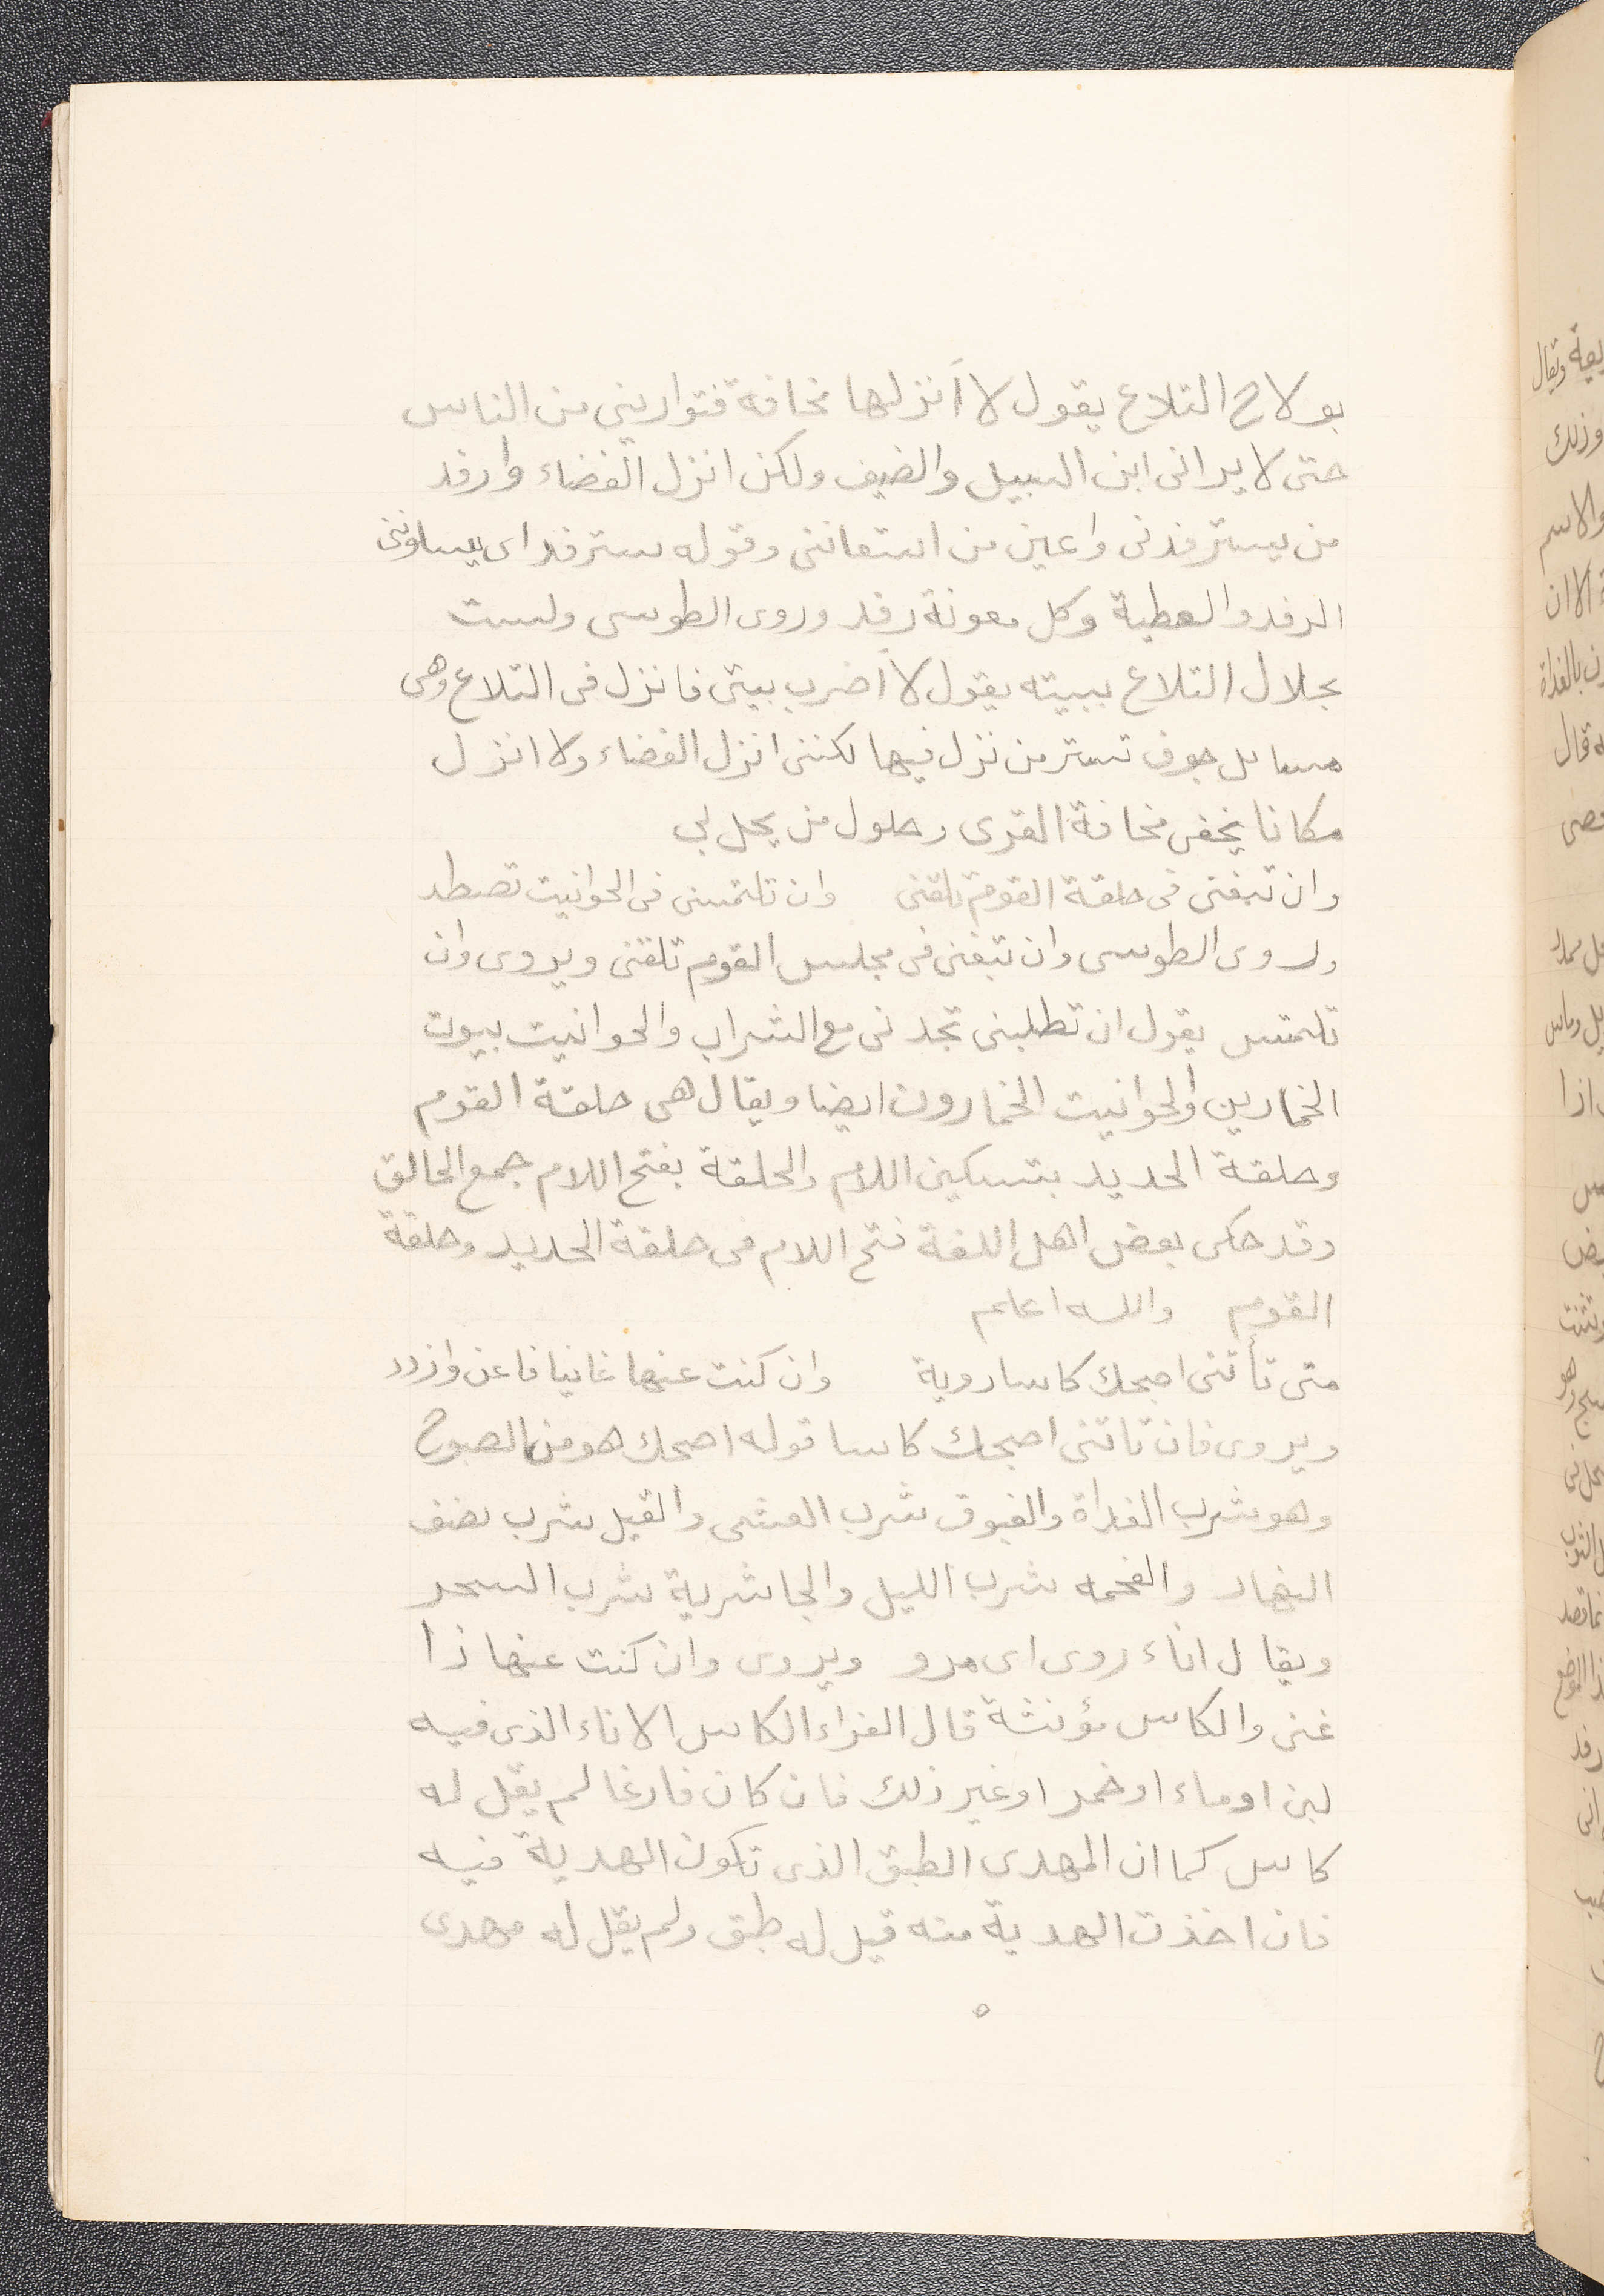 بولاج التلاع يقول لا أنزلها مخافة فتواريني من الناس
حتى لا يراني ابن السبيل والضيف ولكن انزل الفضاء وارفد
من يسترفدنى واعين من استعاننى وقوله سترفد اى
الرفد والعطية وكل معونة رفد وروى الطوسى ولست
بحلال التلاع ببيته يقول لا أضرب بيتى فانزل فى التلاع وهى
مسايل جوف تستر من نزل فيها لكننى انزل الفضاء ولا انزل
مكانا يخفى مخافة القرى وحلول من يحل بى
وان تبغنى فى حلقة القوم تلقنى وان تلتمسنى فى الحوانيت تصطد
وروى الطوسى وان تبغنى فى مجلس القوم تلقنى ويروى وان
تلتمس يقول ان تطلبنى تجدنى مع الشراب والحوانيت بيوت
الخمارين والحوانيت الخمارون ايضا ويقال هى حلقة القوم
وحلقة الحديد بتسكين اللام والحلقة بفتح اللام جمع الحالق
وقد حكى بعض اهل اللغة فتح اللام فى حلقة الحديد وحلقة
القوم والله اعلم
متى تأتنى اصبحك كاسا روية وان كنت عنها غانيا فاغن وازدد
ويروى فان تاتنى اصبحك كاسا قوله اصبحك هو من الصبوح
وهو شرب الغداة والغبوق شرب العشى والقيل شرب نصف
النهار والفحمه شرب الليل والجاشرية شرب السحر
ويقال اناء روى اى مرو ويروى وان كنت عنها ذا
غنى والكاس مؤنثة قال الفراء الكاس الاناء الذى فيه
لبن او ماء او خمر او غير ذلك فان كان فارغا لم يقل له
كاس كما ان المهدى الطبق الذى تكون الهدية فيه
فان اخذت الهدية منه قيل له طبق ولم يقل له مهدى